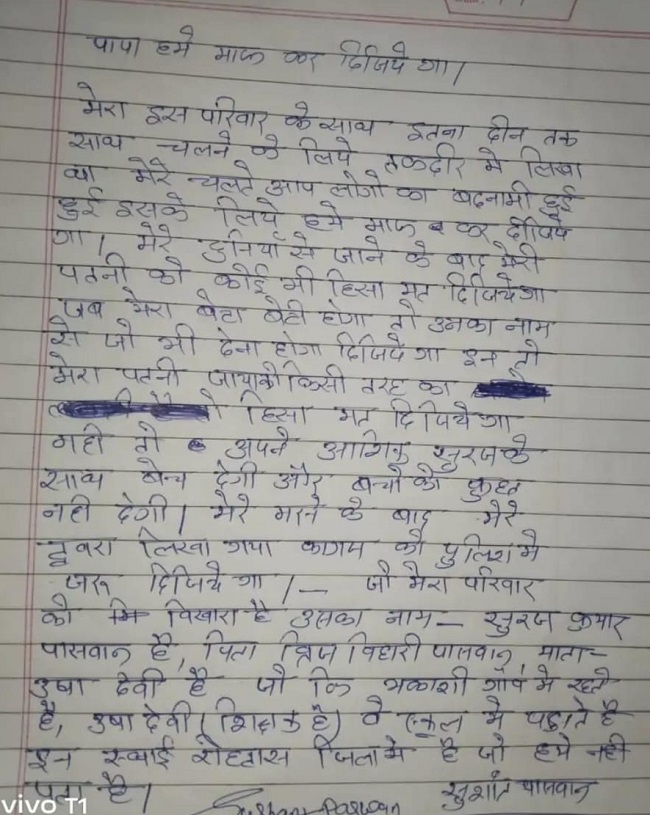 पापा हमे माफ कर दिजिये गा।
मेरा इस परिवार के साथ इतना दीन तक
साथ चलने के लिये तकदीर मे लिखा
था मेरे चलते आप लोगो का बदनामी हुई
हुई इसके लिये हमे माफ कर दीजिये
गा। मेरे दुनिया से जाने के बाद मेरी
पतनी को कोई भी हिसा मत दिजियेगा
जब मेरा बेटा बेटी होगा तो उनका नाम
से जो भी देना होगा दिजिये गा
मेरा पतनी किसी तरह का
हिसा मत दिजियेगा
नही तो अपने आशिक सुरज के
साथ बेच देगी और बच्चो को कुछ
नही देगी। मेरे मरने के बाद मेरे
द्वरा लिखा गया कागज को पुलिश मे
जरू दिजिये गा। — जो मेरा परिवार
को विखारा है उसका नाम — सुरज कुमार
पासवान है, पिता व्रिज विहारी पासवान, माता-
उषा देवी है जो कि अकाशी गाँव मे रहते
है, उषा देवी (शिक्षक है) वे स्कूल मे पढ़ाते है
रोहतास जिला मे है जो हमे नही
पता है।
सुशांत पासवान
vivo T1